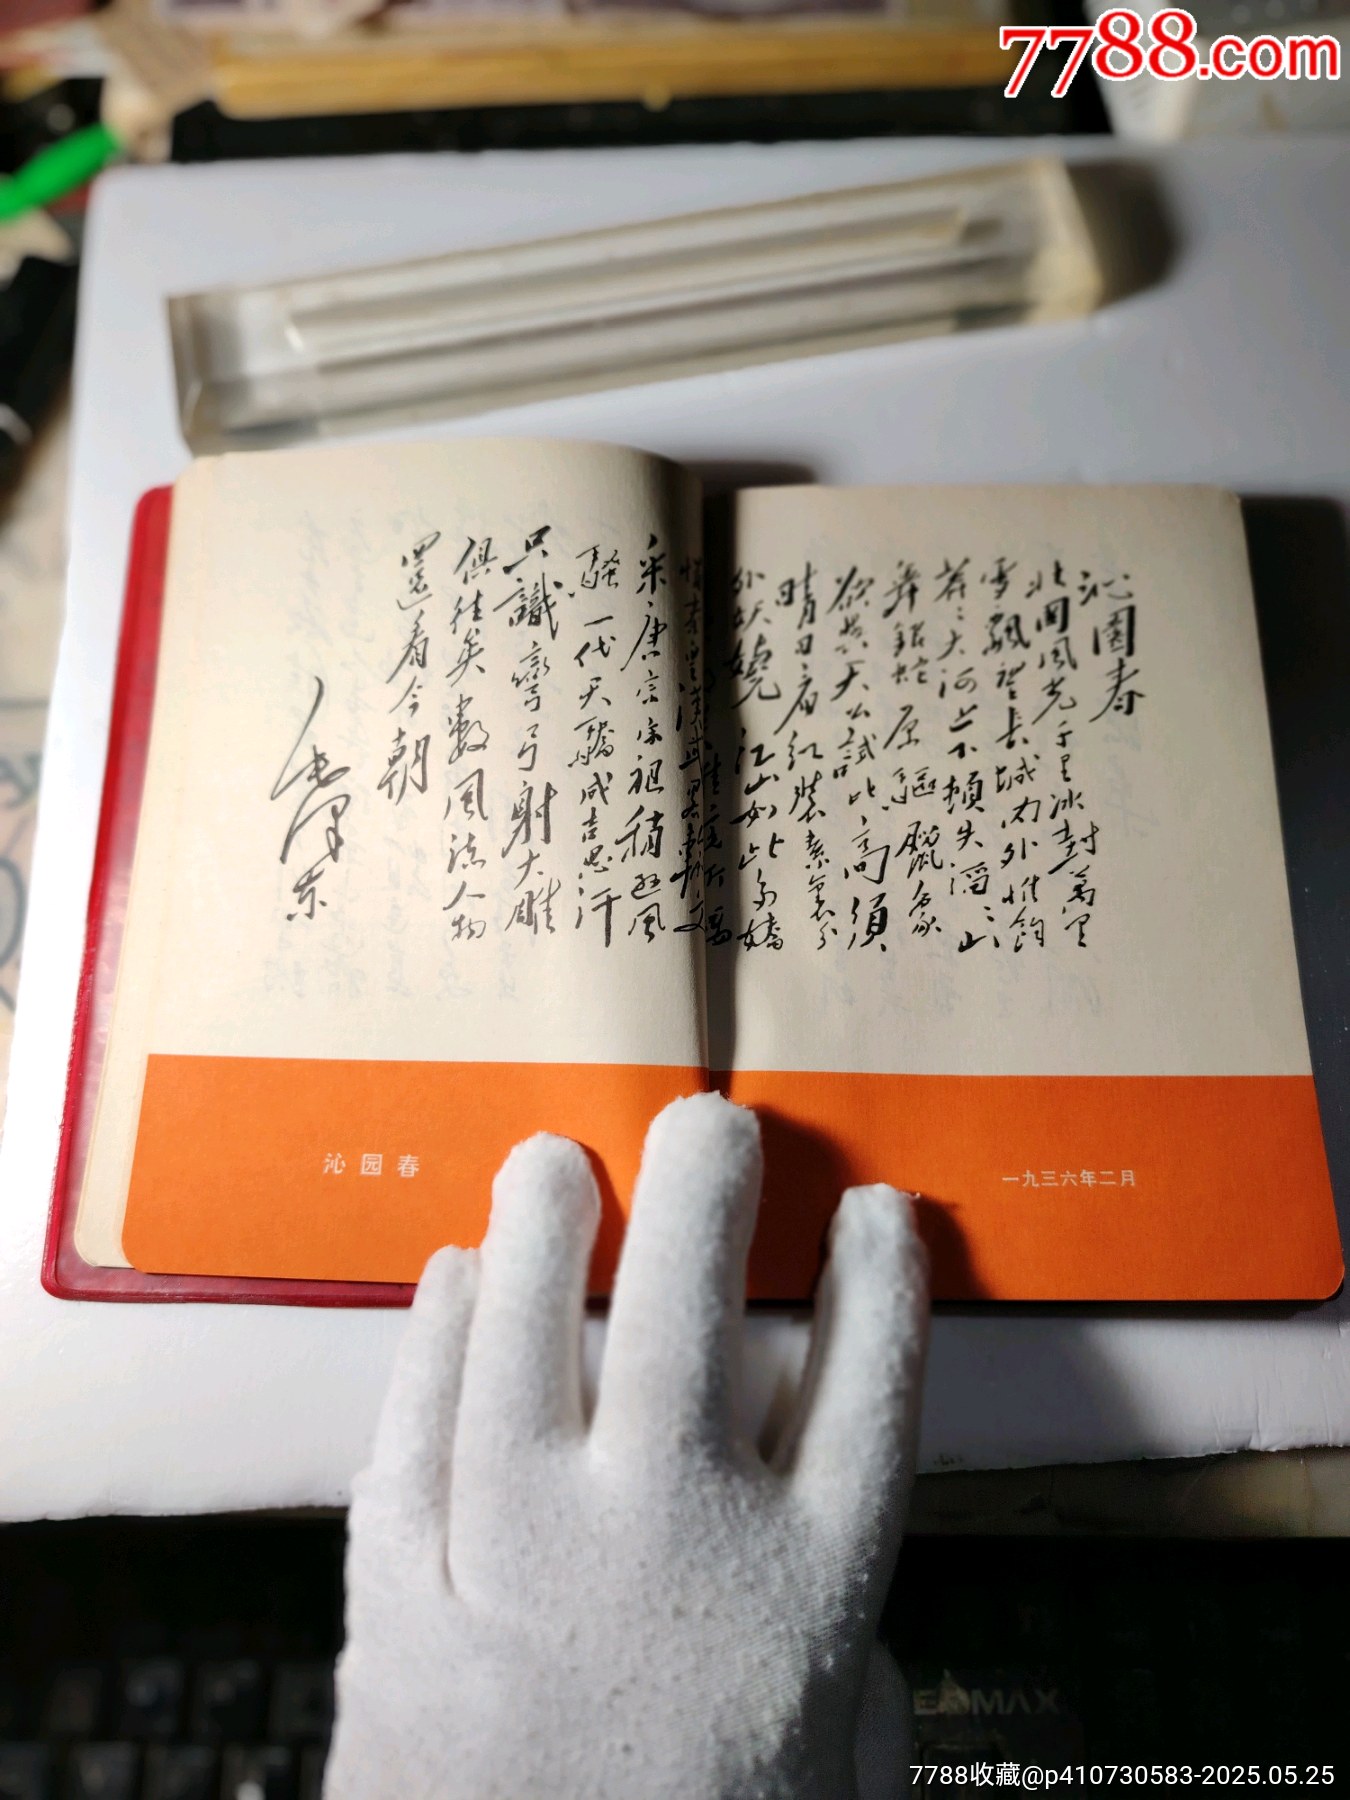 7788.com
沁園春
北國風光千里冰封萬里
雪飄望長城内外惟餘
莽〻大河上下頓失滔〻山
舞銀蛇原驅臘象
欲與天公試比高須
晴日看紅裝素裹分
外妖嬈江山如此多嬌
惜秦皇漢武畧輸文
采唐宗宋祖稍遜風
騷一代天驕成吉思汗
只識彎弓射大雕
俱往矣數風流人物
還看今朝
毛澤東
沁园春
一九三六年二月
7788收藏@p410730583-2025.05.25